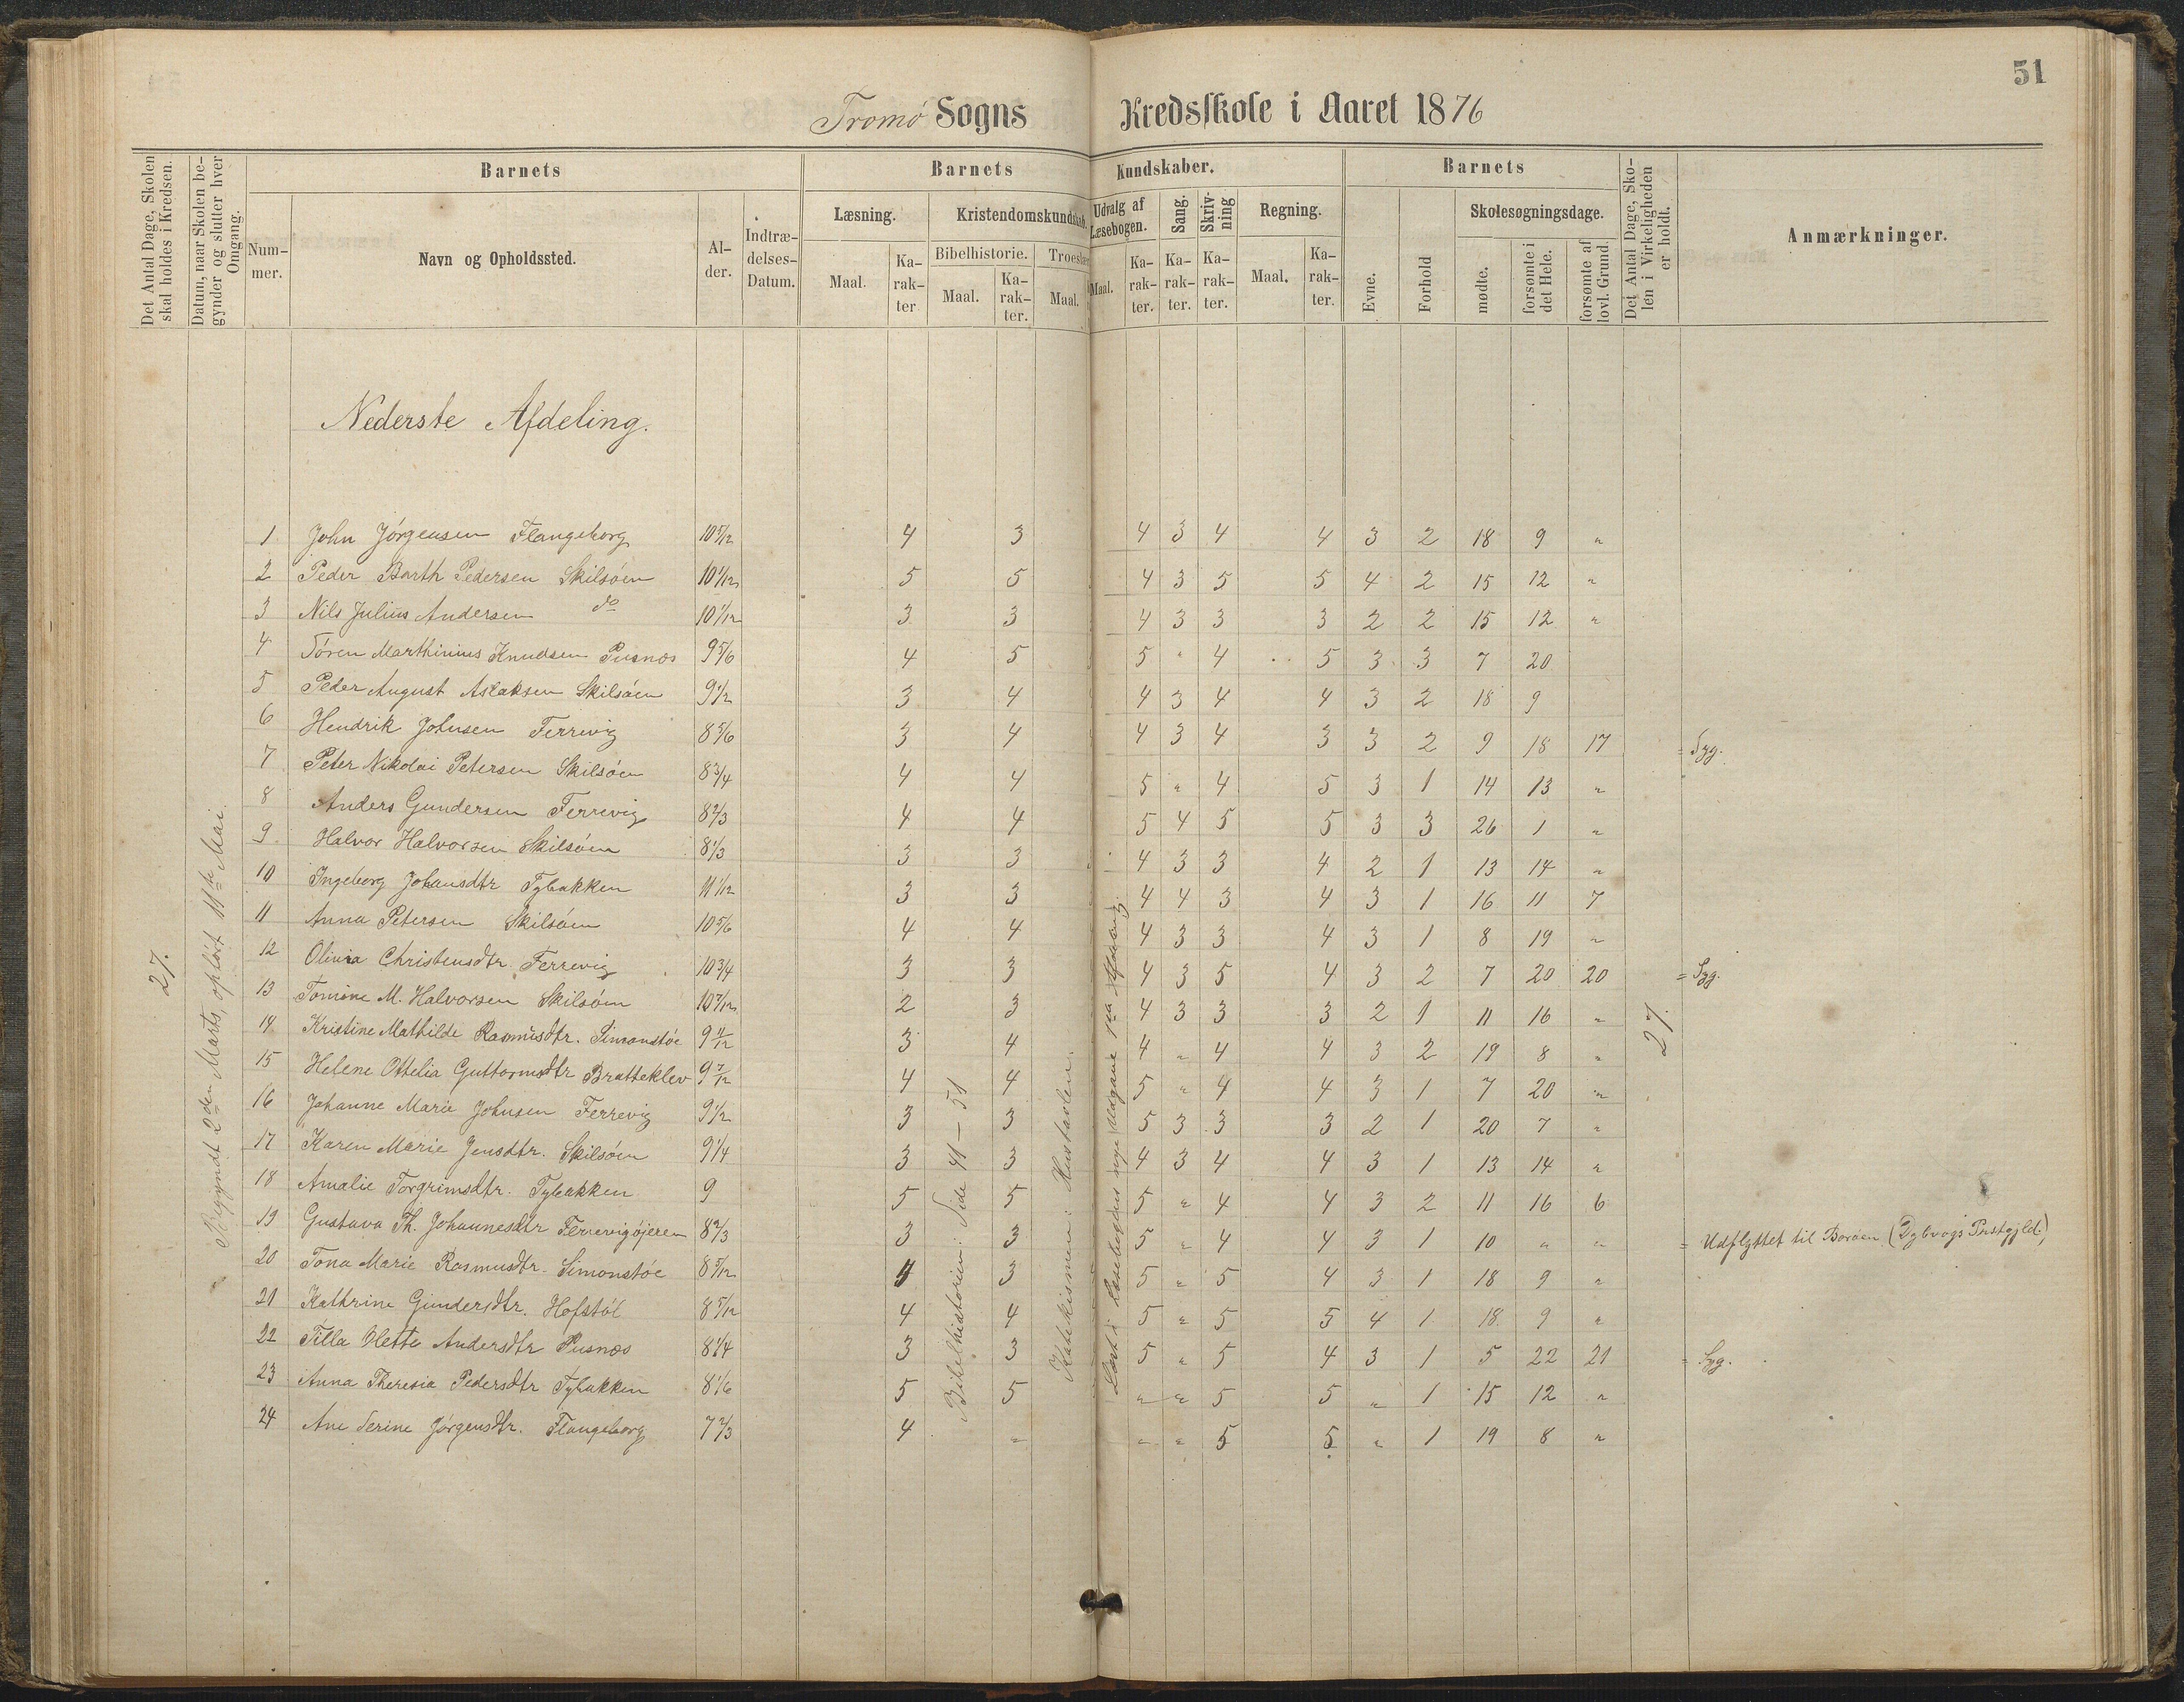 51
Tromø Sogns Kredsskole i Aaret 1876
Det Antal Dage, Skolen skal holdes i Kredsen.
Datum, naar Skolen begynder og slutter hver Omgang.
Barnets
Barnets Kundskaber.
Barnets
Det Antal Dage, Skolen i Virkeligheden er holdt.
Anmærkninger.
Nummer.
Navn og Opholdssted.
Alder.
Indtrædelses-Datum.
Læsning.
Kristendomskundskab.
Udvalg af Læsebogen.
Sang.
Skrivning
Regning.
Evne.
Forhold
Skolesøgningsdage.
Bibelhistorie.
Troeslære
Maal.
Karakter
Maal.
Karakter.
Maal.
Maal.
Karakter.
Karakter.
Karakter.
Maal.
Karakter.
mødte.
forsømte i det Hele.
forsømte af lovl. Grund.
Nederste Afdeling.
27.
Begyndt 2den Marts, ophört 11te Mai.
Bibelhistorien: Side 41 – 51
Katekismen: Hustavlen.
Læst i Læsebogens nye Udgave
27.
1 John Jörgensen Flangeborg 10 5/12 4 3 4 3 4 4 3 2 18 9 "
2 Peder Barth Pedersen Skilsöen 10 1/12 5 5 4 3 5 5 4 2 15 12 "
3 Nils Julius Andersen do 10 1/12 3 3 4 3 3 3 2 2 15 12 "
4 Sören Marthinius Knudsen Pusnæs 9 5/6 4 5 5 " 4 5 3 3 7 20
5 Peder August Aslaksen Skilsöen 9 1/2 3 4 4 3 4 4 3 2 18 9
6 Hendrik Johnsen Færrevig 8 5/6 3 4 4 3 4 3 3 2 9 18 17 = Syg.
7 Peter Nikolai Petersen Skilsöen 8 3/4 4 4 5 " 4 5 3 1 14 13 "
8 Anders Gundersen Færrevig 8 2/3 4 4 5 4 5 5 3 3 26 1 "
9 Halvor Halvorsen Skilsöen 8 1/3 3 3 4 3 3 4 2 1 13 14 "
10 Ingeborg Johansdtr Tybakken 11 1/12 3 3 4 4 3 4 3 1 16 11 7
11 Anna Petersen Skilsöen 10 5/6 4 4 4 3 3 4 3 1 8 19 "
12 Olivia Christensdtr. Færrevig 10 3/4 3 3 4 3 5 4 3 2 7 20 20 = Syg.
13 Tomine M. Halvorsen Skilsöen 10 7/12 2 3 4 3 3 3 2 1 11 16 "
14 Kristine Mathilde Rasmusdtr. Simonstöe 9 11/12 3 4 4 " 4 4 3 2 19 8 "
15 Helene Ottelia Guttormsdtr Bratteklev 9 7/12 4 4 5 " 4 4 3 1 7 20 "
16 Johanne Marie Johnsen Færrevig 9 1/2 3 3 5 3 3 3 2 1 20 7 "
17 Karen Marie Jensdtr. Skilsöen 9 1/4 3 3 4 3 4 4 3 1 13 14 "
18 Amalie Torgrimsdtr. Tybakken 9 5 5 5 " 4 4 3 2 11 16 6
19 Gustava Th. Johannesdtr Færrevigöjeren 8 2/3 3 3 5 " 4 4 3 1 10 " " = Udflyttet til Boröen (Dybvogs Præstgjld.)
20 Tona Marie Rasmusdtr. Simonstöe 8 5/12 4 3 5 " 5 4 3 1 18 9 "
21 Kathrine Gundersdtr. Hofstöl 8 5/12 4 4 5 " 5 5 4 1 18 9 "
22 Tilla Olette Andersdtr Pusnæs 8 1/4 3 3 5 " 5 4 3 1 5 22 21 = Syg.
23 Anna Theresia Pedersdtr Tybakken 8 1/6 5 5 " " 5 5 " 1 15 12 "
24 Ane Serine Jörgensdtr. Flangeborg 7 2/3 4 " " " 5 5 " 1 19 8 "